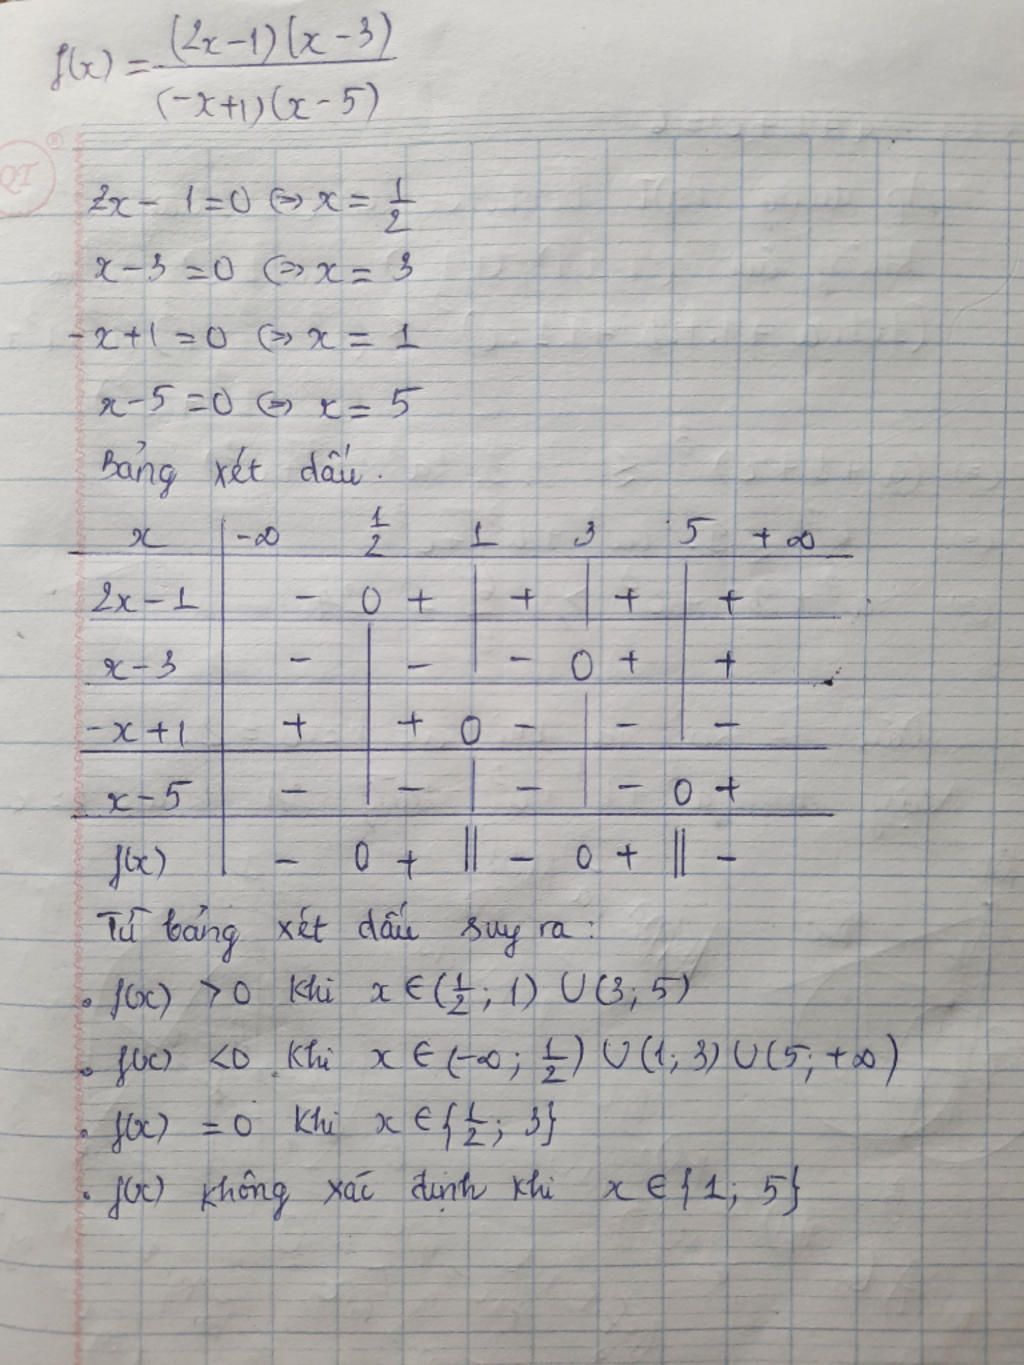 f(x) = (2x-1)(x-3) / (-x+1)(x-5)
2x - 1 = 0 ⇔ x = 1/2
x - 3 = 0 ⇔ x = 3
-x + 1 = 0 ⇔ x = 1
x - 5 = 0 ⇔ x = 5
Bảng xét dấu.
x | -∞ 1/2 1 3 5 +∞
2x - 1 | - 0 + | + | + | +
x - 3 | - | - | - 0 + | +
-x + 1 | + | + 0 - | - | -
x - 5 | - | - | - | - 0 +
f(x) | - 0 + || - 0 + || -
Từ bảng xét dấu suy ra:
• f(x) > 0 khi x ∈ (1/2; 1) ∪ (3; 5)
• f(x) < 0 khi x ∈ (-∞; 1/2) ∪ (1; 3) ∪ (5; +∞)
• f(x) = 0 khi x ∈ {1/2; 3}
• f(x) không xác định khi x ∈ {1; 5}